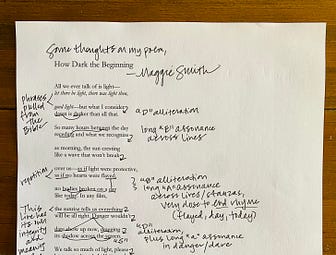 Some thoughts on my poem,
How Dark the Beginning
—Maggie Smith
All we ever talk of is light—
let there be light, there was light then,
good light—but what I consider
dawn is darker than all that.
So many hours between the day
and what we recognize
as morning, the sun cresting
like a wave that won't break
over us—as if light were protective,
as if no hearts were flayed,
no bodies broken on a day
like today. In any film,
the sunrise tells us everything
will be all right. Danger wouldn't
dare show up now, dragging
its shadow across the screen.
We talk so much of light, please
Phrases
pulled
from
the
Bible
repetition
This
line has
its own
integrity
and
meaning
"D" alliteration
long "E" assonance
across lines
"B" alliteration
long "A" assonance
across lines/stanzas,
very close to end rhyme
(flayed, day, today)
"D"
alliteration,
plus long "a" assonance
in danger/dare
"S"